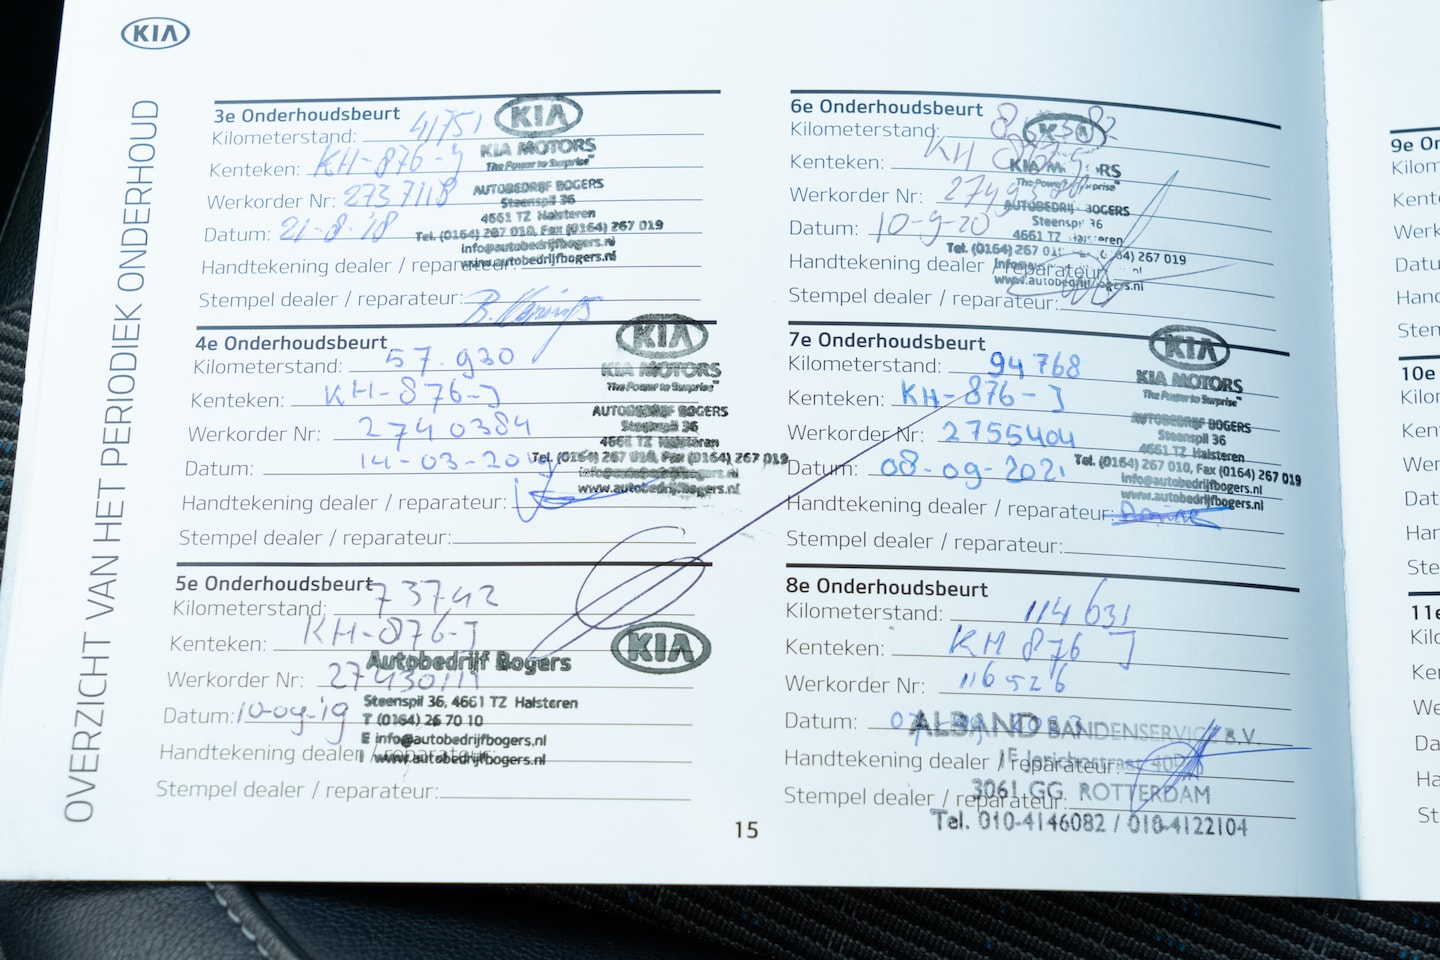 KIA
OVERZICHT VAN HET PERIODIEK ONDERHOUD
3e Onderhoudsbeurt
Kilometerstand: 41751
Kenteken: KH-876-J
Werkorder Nr: 2737118
Datum: 21-8-'18
Handtekening dealer / reparateur:
Stempel dealer / reparateur:
KIA
KIA MOTORS
The Power to Surprise™
AUTOBEDRIJF BOGERS
Steenspil 36
4661 TZ Halsteren
Tel. (0164) 267 010, Fax (0164) 267 019
info@autobedrijfbogers.nl
www.autobedrijfbogers.nl
4e Onderhoudsbeurt
Kilometerstand: 57.930
Kenteken: KH-876-J
Werkorder Nr: 2740384
Datum: 14-03-2019
Handtekening dealer / reparateur:
Stempel dealer / reparateur:
KIA
KIA MOTORS
The Power to Surprise™
AUTOBEDRIJF BOGERS
Steenspil 36
4661 TZ Halsteren
Tel. (0164) 267 010, Fax (0164) 267 019
info@autobedrijfbogers.nl
www.autobedrijfbogers.nl
5e Onderhoudsbeurt
Kilometerstand: 73742
Kenteken: KH-876-J
Werkorder Nr:
Datum: 10-09-'19
Handtekening dealer / reparateur:
Stempel dealer / reparateur:
KIA
Autobedrijf Bogers
Steenspil 36, 4661 TZ Halsteren
T (0164) 26 70 10
E info@autobedrijfbogers.nl
I www.autobedrijfbogers.nl
6e Onderhoudsbeurt
Kilometerstand:
Kenteken: KH
Werkorder Nr:
Datum: 10-9-20
Handtekening dealer / reparateur:
Stempel dealer / reparateur:
KIA
KIA MOTORS
The Power to Surprise™
AUTOBEDRIJF BOGERS
Steenspil 36
4661 TZ Halsteren
Tel. (0164) 267 019
www.autobedrijfbogers.nl
7e Onderhoudsbeurt
Kilometerstand: 94768
Kenteken: KH-876-J
Werkorder Nr: 2755404
Datum: 08-09-2021
Handtekening dealer / reparateur:
Stempel dealer / reparateur:
KIA
KIA MOTORS
The Power to Surprise™
AUTOBEDRIJF BOGERS
Steenspil 36
4661 TZ Halsteren
Tel. (0164) 267 010, Fax (0164) 267 019
info@autobedrijfbogers.nl
www.autobedrijfbogers.nl
8e Onderhoudsbeurt
Kilometerstand: 114631
Kenteken: KH 876 J
Werkorder Nr: 116526
Datum:
Handtekening dealer / reparateur:
Stempel dealer / reparateur:
ALBAND BANDENSERVICE B.V.
3061 GG ROTTERDAM
Tel. 010-4146082 / 010-4122104
15
9e On
Kilom
Kente
Werk
Datu
Hand
Stem
10e
Kilor
Ken
Wer
Dat
Har
Ste
11e
Kilo
Ke
We
Da
Ha
St